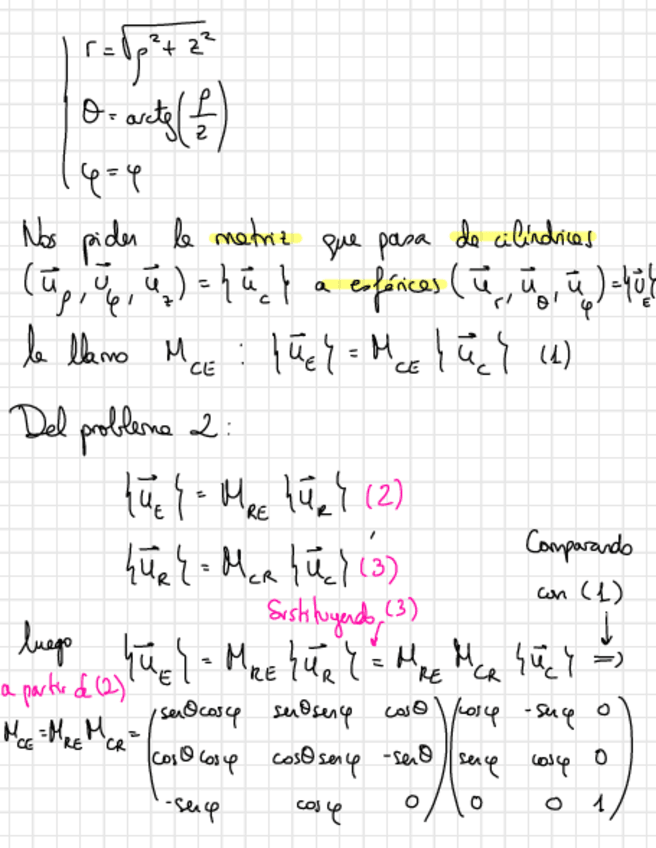 r = √(ρ² + z²)
θ = arctg(ρ/z)
φ = φ
Nos piden la matriz que pasa de cilíndricas
(u⃗ρ, u⃗φ, u⃗z) = {u⃗c} a esféricas (u⃗r, u⃗θ, u⃗φ) = {u⃗E}
la llamo M_CE : {u⃗E} = M_CE {u⃗c} (1)
Del problema 2:
{u⃗E} = M_RE {u⃗R} (2)
{u⃗R} = M_CR {u⃗c} (3)
Comparando
con (1)
Sustituyendo (3)
luego {u⃗E} = M_RE {u⃗R} = M_RE M_CR {u⃗c} =>
a partir de (2)
M_CE = M_RE M_CR =
(senθcosφ senθsenφ cosθ) (cosφ -senφ 0)
(cosθcosφ cosθsenφ -senθ) (senφ cosφ 0)
(-senφ cosφ 0) (0 0 1)